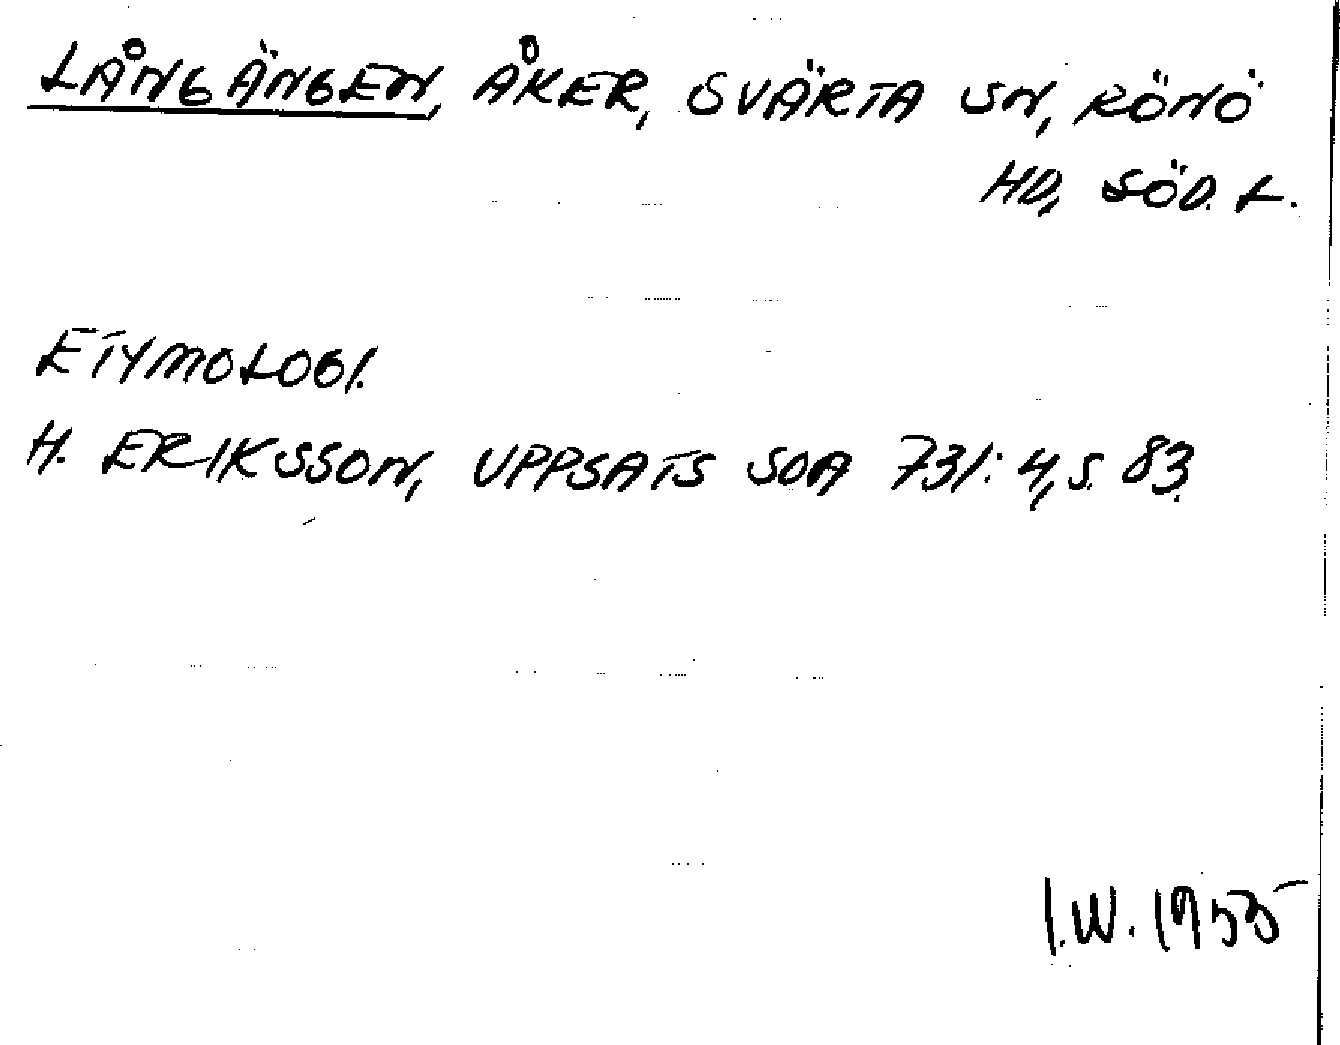 LÅNGÄNGEN, ÅKER, SVÄRTA SN, RÖNÖ
HD, SÖD. L.
ETYMOLOGI.
H. ERIKSSON, UPPSATS SOA 731:4, S. 83.
I.W. 1955